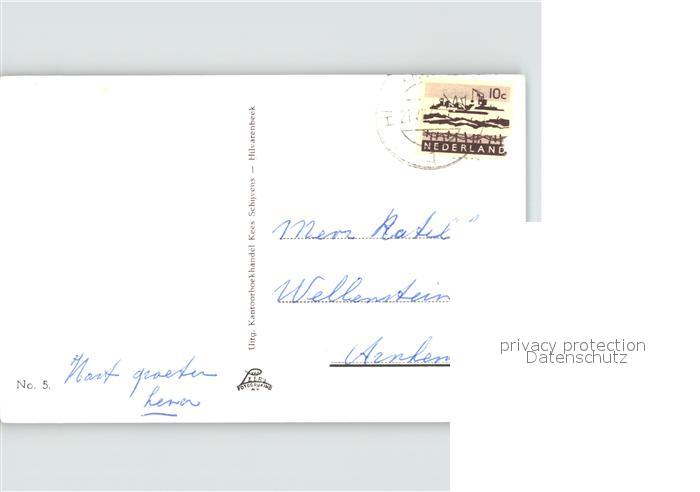 10c
NEDERLAND
Uitg. Kantoorboekhandel Kees Schijvens — Hilvarenbeek
Mevr
Wellenstein
Arnhem
privacy protection
Datenschutz
Hart groeten
No. 5.
FOTODRUKKERIJ